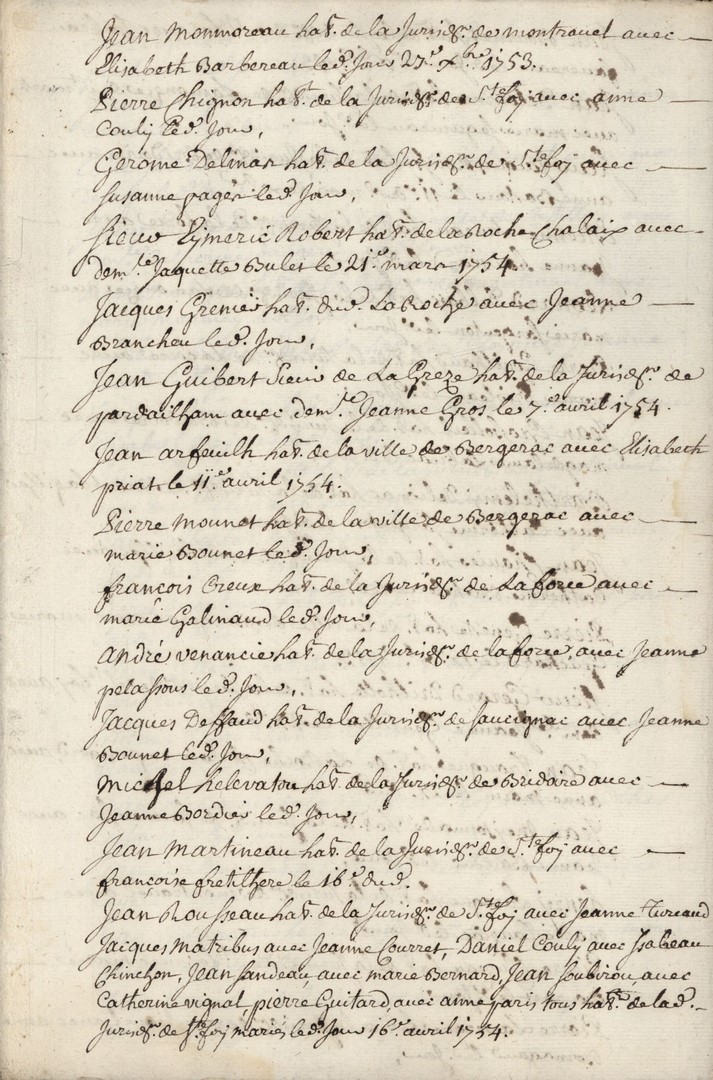 Jean Monmoreau hat. de la Jurisd.on de montravel avec
Elisabeth Barbereau led. Jour 27.e xbre 1753.
Pierre Chignon hat. de la Jurisd.on de Ste foy avec anne
Couly led. Jour,
Gerôme Delmas hat. de la Jurisd.on de Ste foy avec
Susanne pages led. Jour,
Sieur Eymeric Robert hat. de la Roche Chalaix avec
dem.lle Jaquette Bulet le 21.e mars 1754
Jacques Grenier hat. dud. La Roche avec Jeanne
Brancheu led. Jour,
Jean Guibert Sieur de La Greze hat. de la Jurisd.on de
pardailham avec dem.lle Jeanne Gros le 7.e avril 1754.
Jean arfeuilh hat. de la ville de Bergerac avec Elisabeth
priat le 11.e avril 1754.
Pierre Mounet hat. de la ville de Bergerac avec
marie Bounet led. Jour,
françois Creux hat. de la Jurisd.on de Laforce avec
marie Galinaud led. Jour,
André venancie hat. de la Jurisd.on de laforce, avec Jeanne
pelassous led. Jour,
Jacques Deffaud hat. de la Jurisd.on de Saucignac avec Jeanne
Bounet led. Jour,
Michel helevatou hat. de la Jurisd.on de Bridoire avec
Jeanne Bordier led. Jour,
Jean Martineau hat. de la Jurisd.on de Ste foy avec
françoise fretilhere le 16.e dud.
Jean Rousseau hat. de la Jurisd.on de Ste foy avec Jeanne
Jacques Matribus avec Jeanne Courret, Daniel Couly avec Isabeau
Chinchon, Jean Sandeau, avec marie Bernard, Jean Soubirou, avec
Catherine vignal, pierre Guitard, avec anne paris tous hats. de lad.
Jurisd.on de Ste foy mariés led. Jour 16.e avril 1754.